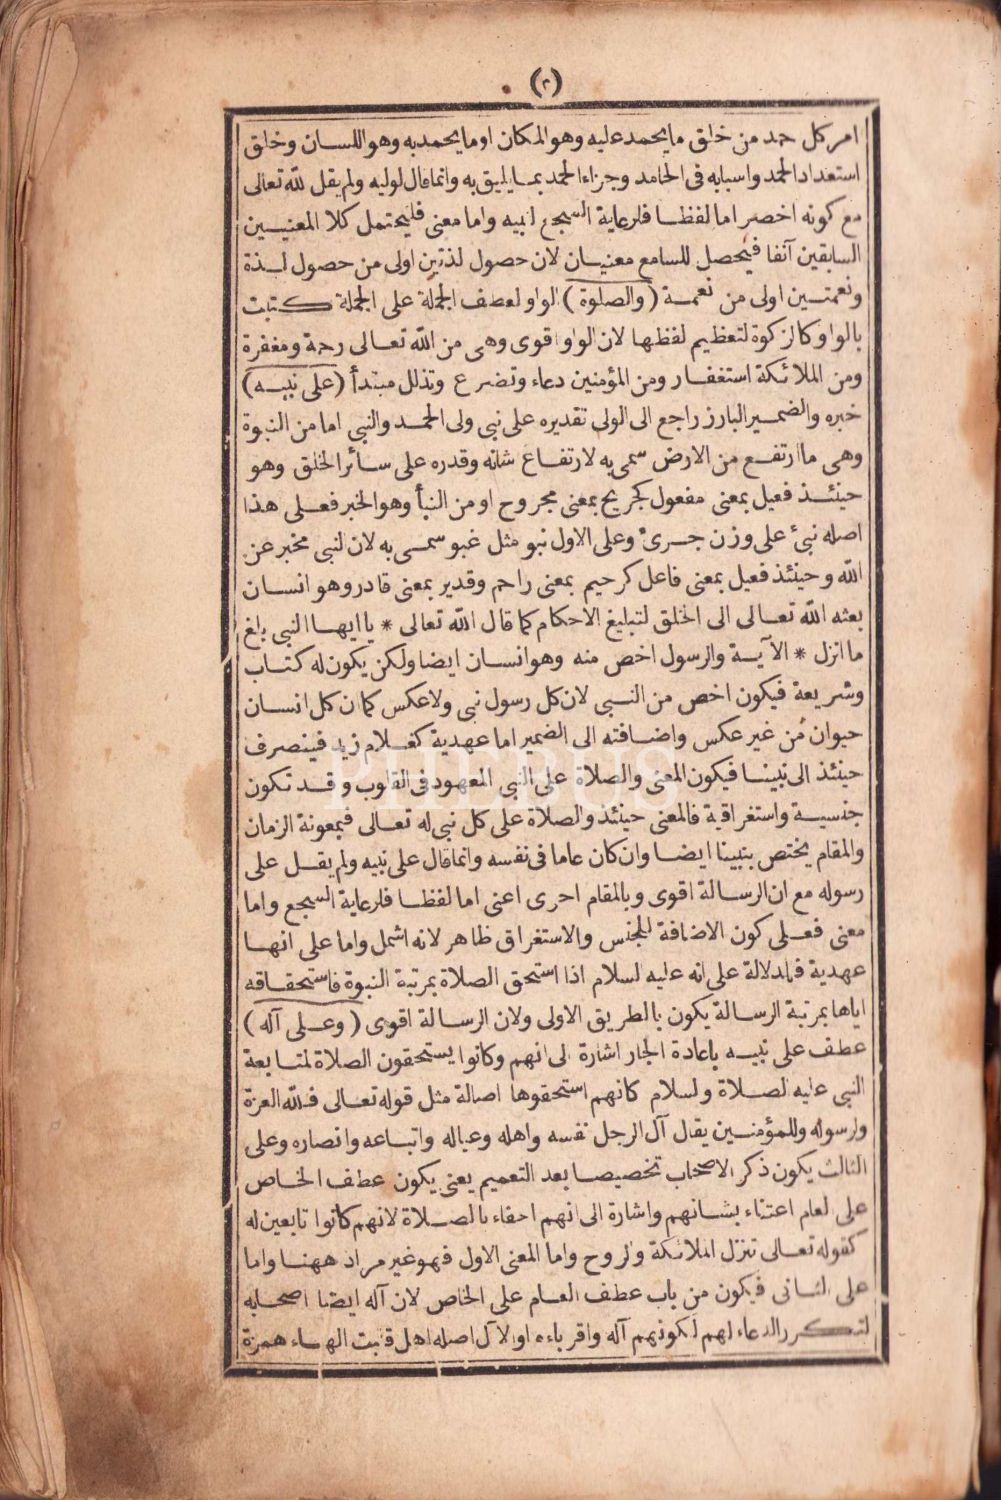 (٢)
امر كل حمد من خلق ما يحمد عليه وهو المكان او ما يحمد به وهو اللسان وخلق
استعداد الحمد واسبابه فى الحامد وجزاء الحمد بما يليق به وانما قال لوليه ولم يقل لله تعالى
مع كونه اخصر اما لفظا فلرعاية السجع لنبيه واما معنى فليحتمل كلا المعنيين
السابقين آنفا فيحصل للسامع معنيان لان حصول لذتين اولى من حصول لذة
ونعمتين اولى من نعمة (والصلوة) الواو لعطف الجملة على الجملة كتبت
بالواو كالزكوة لتعظيم لفظها لان الواو اقوى وهى من الله تعالى رحمة ومغفرة
ومن الملائكة استغفار ومن المؤمنين دعاء وتضرع وتذلل مبتدأ (على نبيه)
خبره والضمير البارز راجع الى الولى تقديره على نبى ولى الحمد والنبى اما من النبوة
وهى ما ارتفع من الارض سمى به لارتفاع شانه وقدره على سائر الخلق وهو
حينئذ فعيل بمعنى مفعول كجريح بمعنى مجروح او من النبأ وهو الخبر فعلى هذا
اصله نبئ على وزن جرئ وعلى الاول نبو مثل غبو سمى به لان النبى مخبر عن
الله وحينئذ فعيل بمعنى فاعل كرحيم بمعنى راحم وقدير بمعنى قادر وهو انسان
بعثه الله تعالى الى الخلق لتبليغ الاحكام كما قال الله تعالى * يا ايها النبى بلغ
ما انزل * الآية والرسول اخص منه وهو انسان ايضا ولكن يكون له كتاب
وشريعة فيكون اخص من النبى لان كل رسول نبى ولا عكس كما ان كل انسان
حيوان من غير عكس واضافته الى الضمير اما عهدية كغلام زيد فينصرف
حينئذ الى نبينا فيكون المعنى والصلاة على النبى المعهود فى القلوب وقد تكون
جنسية واستغراقية فالمعنى حينئذ والصلاة على كل نبى له تعالى فبمعونة الزمان
والمقام يختص بنبينا ايضا وان كان عاما فى نفسه وانما قال على نبيه ولم يقل على
رسوله مع ان الرسالة اقوى وبالمقام احرى اعنى اما لفظا فلرعاية السجع واما
معنى فعلى كون الاضافة للجنس والاستغراق ظاهر لانه اشمل واما على انها
عهدية فللدلالة على انه عليه السلام اذا استحق الصلاة بمرتبة النبوة فاستحقاقه
اياها بمرتبة الرسالة يكون بالطريق الاولى ولان الرسالة اقوى (وعلى آله)
عطف على نبيه باعادة الجار اشارة الى انهم وكانوا يستحقون الصلاة لمتابعة
النبى عليه الصلاة والسلام كانهم استحقوها اصالة مثل قوله تعالى فلله العزة
ولرسوله وللمؤمنين يقال آل الرجل نفسه واهله وعياله واتباعه وانصاره وعلى
الثالث يكون ذكر الاصحاب تخصيصا بعد التعميم يعنى يكون عطف الخاص
على العام اعتناء بشانهم واشارة الى انهم احقاء بالصلاة لانهم كانوا تابعين له
كقوله تعالى تنزل الملائكة والروح واما المعنى الاول فهو غير مراد ههنا واما
على الثانى فيكون من باب عطف العام على الخاص لان آله ايضا اصحابه
لتكرر الدعاء لهم لكونهم آله واقرباءه او الآل اصله اهل قلبت الهاء همزة